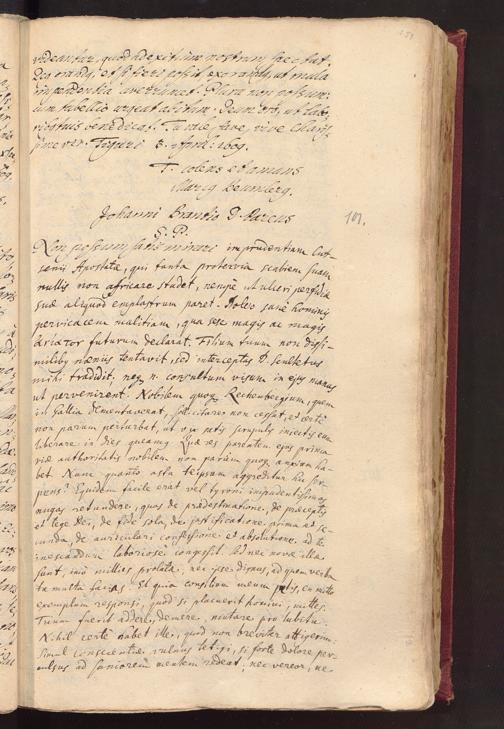 videantur, quod ad exitium nostrum spectat.
Deo orandus, et si fieri possit, exorandus ut mala
impendentia avertantur. Plura non possum:
urget abitum. Deum oro, ut labo-
benedicat. Tu me fave, vive Chariss
ime ver. Tiguri 8. April: 1609.
T. colens et amans
Marcus Beumlerus.
Johanni Brantio D. Parcus
101.
S. P.
Non possum satis mirari imprudentiam
Apostatae, qui tanta protervia scabiem suam
nullis non affricare studet, nempe ut ulceri perfidiae
suae aliquod emplastrum paret. Doleo sane hominis
pervicacem malitiam, qua sese magis ac magis
futurum declarat. Filium tuum non dissi-
milibus naeniis tentavit, sed interceptas D. Scultetus
mihi tradidit, neque n. consultum visum in ejus manus
ut pervenirent. Nobilem quoque Rechenbergium, quem
in Gallia dementaverat, sollicitare non cessat, et certe
non parum perturbat, ut injectis eum
liberare in dies queamus. Quae res parentem ejus primar
riae authoritatis nobilem non parum quoque anxium ha-
bet. Nunc quanto astu teipsum aggreditur hic ser-
pens? Equidem facile erat vel tyroni impudentissimas
nugas retundere, quas de praedestinatione, de praeceptis
et lege Dei, de fide sola, de justificatione prima et se-
cunda, de auriculari confessione et absolutione ad te
laboriose congessit. Ad nec novae illae
sunt, imo millies prolatae, nec ipse dignus, ad quem verba
multa facias. Et quia consilium meum petis, en mitto
exemplum responsi, quod si placuerit homini, mittes.
Tuum fuerit addere, demere, mutare pro lubitu.
Nihil certe habet ille, quod non breviter attigerim.
Simul conscientiae vulnus tetigi, si forte dolore per-
culsus ad saniorem mentem redeat, nec vereor, ne